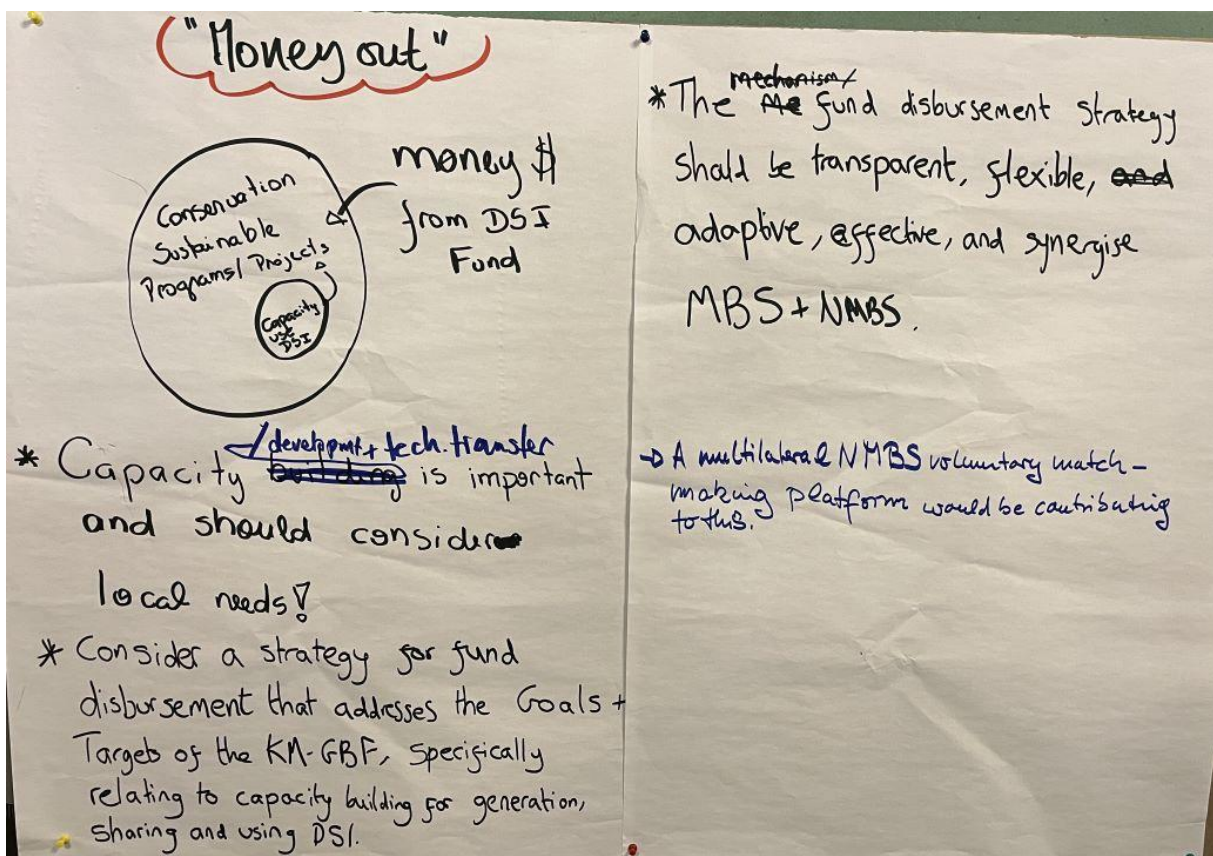 "Money out"
Conservation
Sustainable
Programs/ Projects
Capacity
use
DSI
money $
from DSI
Fund
/developmt + tech. transfer
* Capacity building is important
and should consider
local needs!
* Consider a strategy for fund
disbursement that addresses the Goals +
Targets of the KM-GBF, specifically
relating to capacity building for generation,
sharing and using DSI.
mechanism/
* The Me fund disbursement strategy
should be transparent, flexible, and
adaptive, effective, and synergise
MBS + NMBS.
→ A multilateral NMBS voluntary match-
making platform would be contributing
to this.